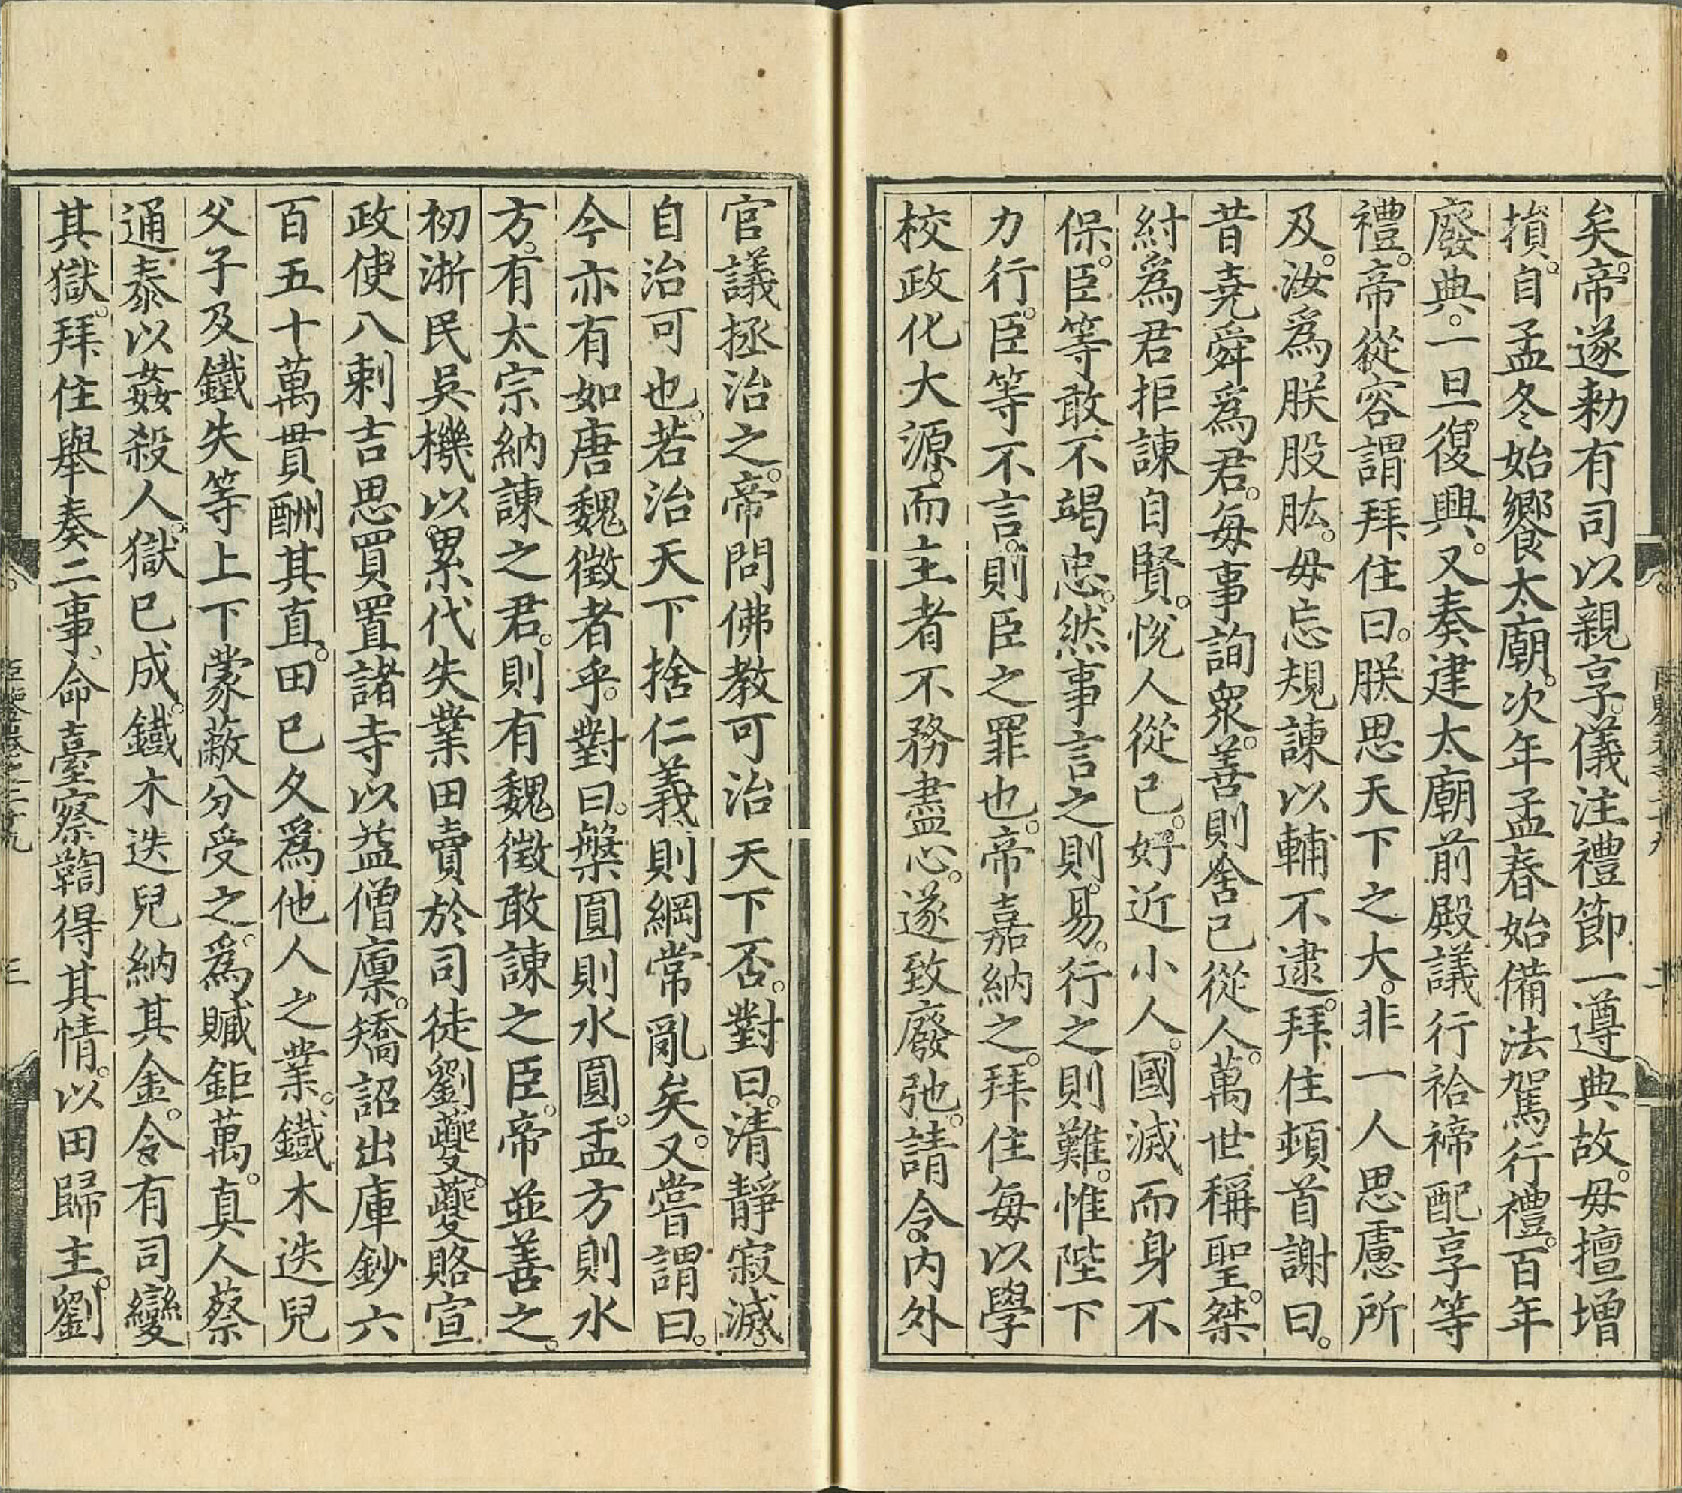 矣。帝遂勅有司以親享。儀注禮節一遵典故。毋擅增
損。自孟冬始饗太廟。次年孟春始備法駕行禮。百年
廢典。一旦復興。又奏建太廟前殿議行祫禘配享等
禮。帝從容謂拜住曰。朕思天下之大。非一人思慮所
及。汝爲朕股肱。毋忘規諫以輔不逮。拜住頓首謝曰。
昔堯舜爲君。每事詢衆。善則舍己從人。萬世稱聖。桀
紂爲君拒諫自賢。悅人從己。好近小人。國滅而身不
保。臣等敢不竭忠。然事言之則易。行之則難。惟陛下
力行。臣等不言。則臣之罪也。帝嘉納之。拜住每以學
校政化大源。而主者不務盡心。遂致廢弛。請令內外
官議拯治之。帝問佛教可治天下否。對曰。清靜寂滅。
自治可也。若治天下捨仁義則綱常亂矣。又嘗謂曰。
今亦有如唐魏徵者乎。對曰。槃圓則水圓。盂方則水
方。有太宗納諫之君。則有魏徵敢諫之臣。帝並善之。
初浙民吳機以累代失業田賣於司徒劉夔。夔賂宣
政使八剌吉思買置諸寺以益僧廩。矯詔出庫鈔六
百五十萬貫酬其直。田已久爲他人之業。鐵木迭兒
父子及鐵失等上下蒙蔽分受之。爲贓鉅萬。真人蔡
通泰以姦殺人。獄已成。鐵木迭兒納其金。令有司變
其獄。拜住舉奏二事、命臺察鞫得其情。以田歸主。劉